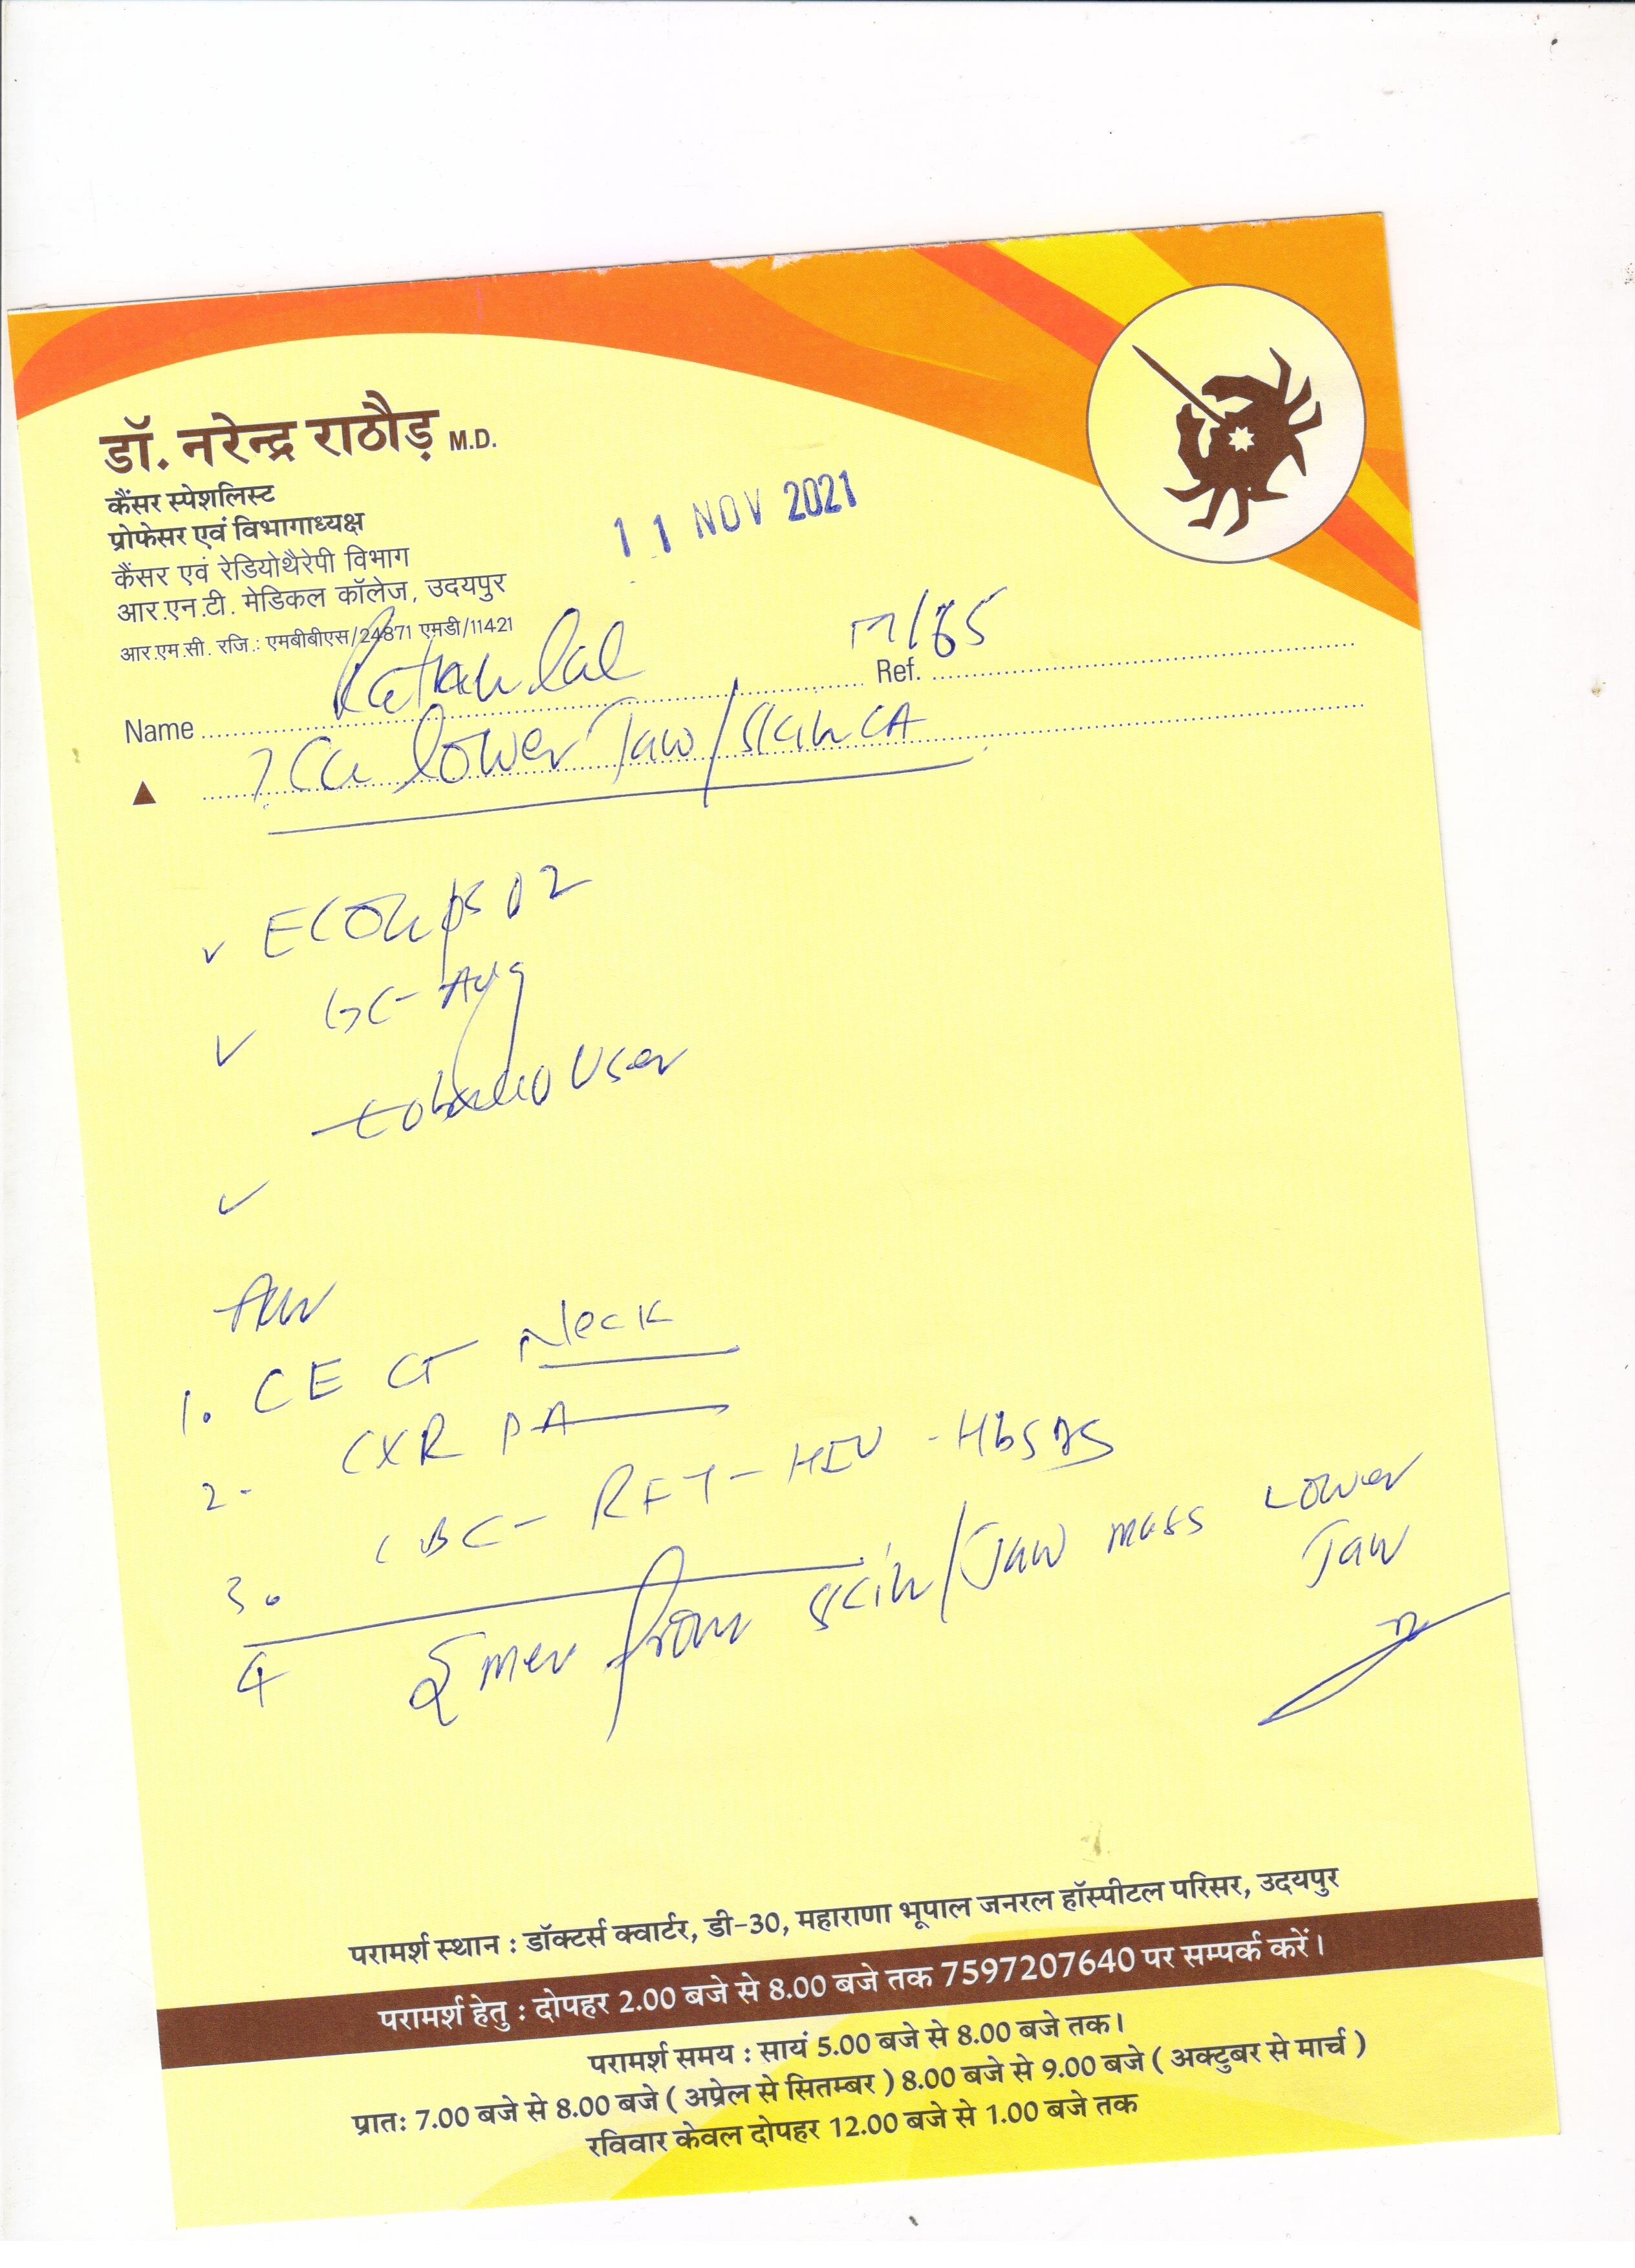 डॉ. नरेन्द्र राठौड़ M.D.
कैंसर स्पेशलिस्ट
प्रोफेसर एवं विभागाध्यक्ष
कैंसर एवं रेडियोथैरेपी विभाग
आर.एन.टी. मेडिकल कॉलेज, उदयपुर
आर.एम.सी. रजि.: एमबीबीएस/24871 एमडी/11421
11 NOV 2021
Name Ratan Lal Ref. M/85
? Ca lower Jaw / Skin CA
ECOG PS 02
GC- Avg
tobacco User
Adv
1. CE CT Neck
2- CXR PA
3. CBC- RFT- HIV - HbSAg
4 Smer from Skin/Jaw mass Lower Jaw
परामर्श स्थान : डॉक्टर्स क्वार्टर, डी-30, महाराणा भूपाल जनरल हॉस्पीटल परिसर, उदयपुर
परामर्श हेतु : दोपहर 2.00 बजे से 8.00 बजे तक 7597207640 पर सम्पर्क करें।
परामर्श समय : सायं 5.00 बजे से 8.00 बजे तक।
प्रातः 7.00 बजे से 8.00 बजे ( अप्रेल से सितम्बर ) 8.00 बजे से 9.00 बजे ( अक्टुबर से मार्च )
रविवार केवल दोपहर 12.00 बजे से 1.00 बजे तक